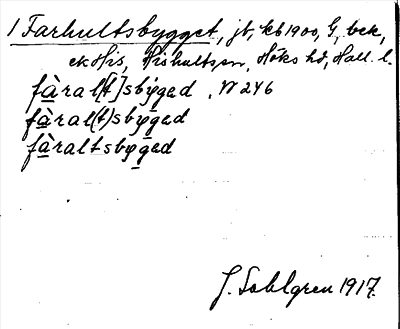 1 Farhultsbygget, jb, kb 1900, G, bek,
ek His, Hishultssn, Höks hd, Hall. l.
fàral[t]sbýgad , N 246
fàral(t)sbýgad
fàraltsbygad
J. Sahlgren 1917.